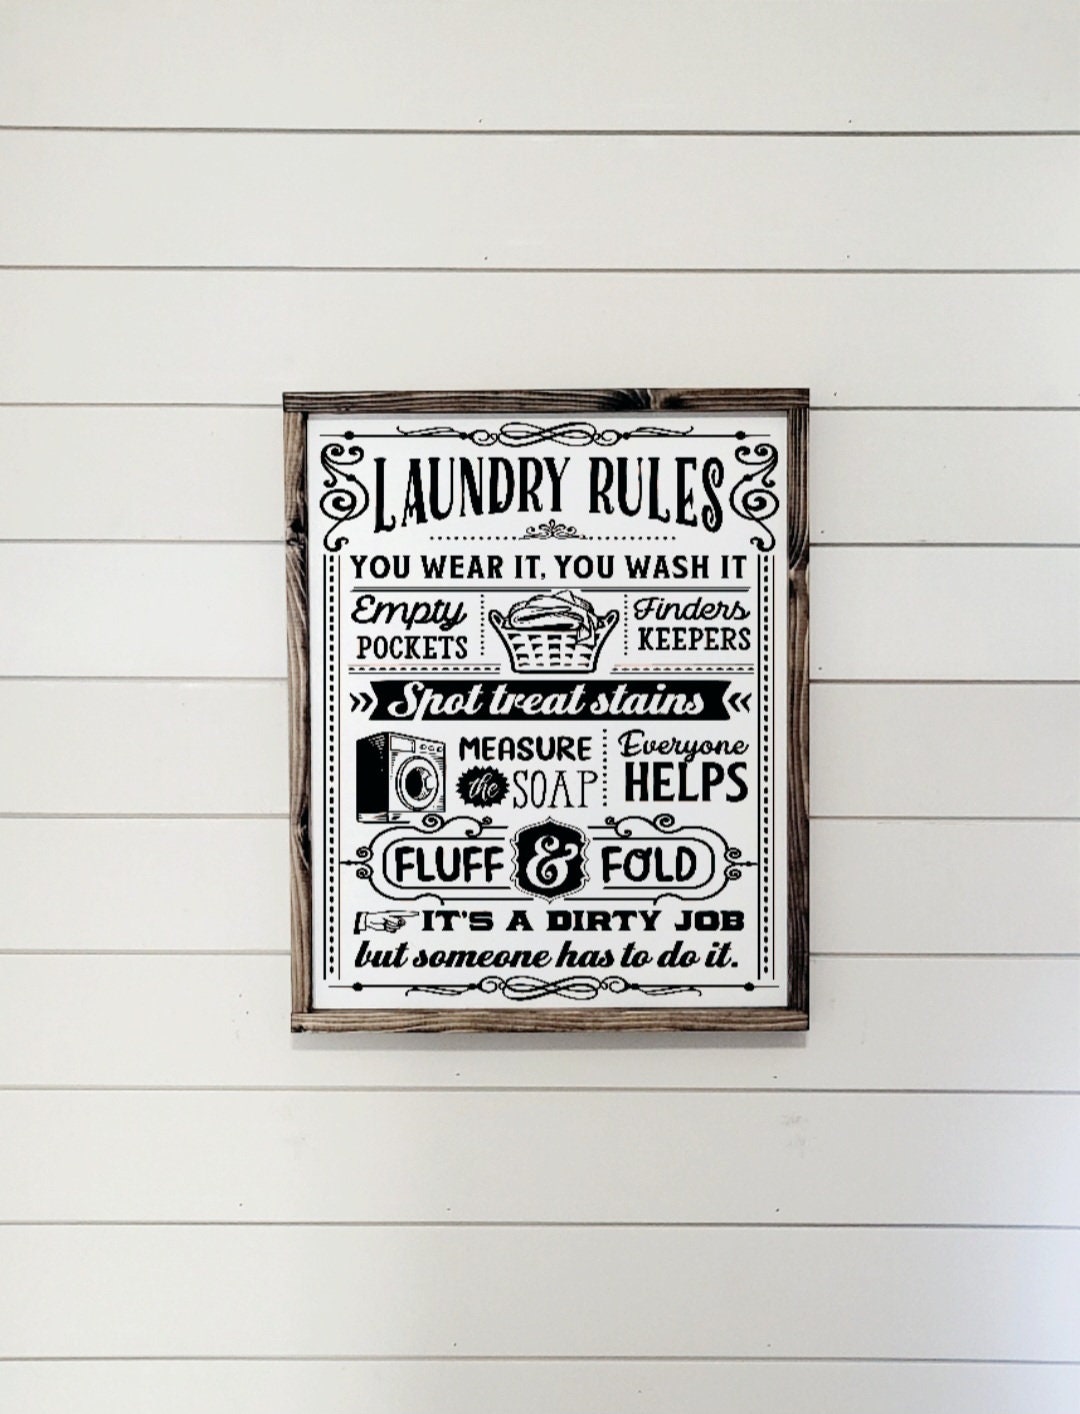 LAUNDRY RULES
YOU WEAR IT, YOU WASH IT
Empty
POCKETS
Finders
KEEPERS
Spot treat stains
MEASURE
the SOAP
Everyone
HELPS
FLUFF & FOLD
IT'S A DIRTY JOB
but someone has to do it.